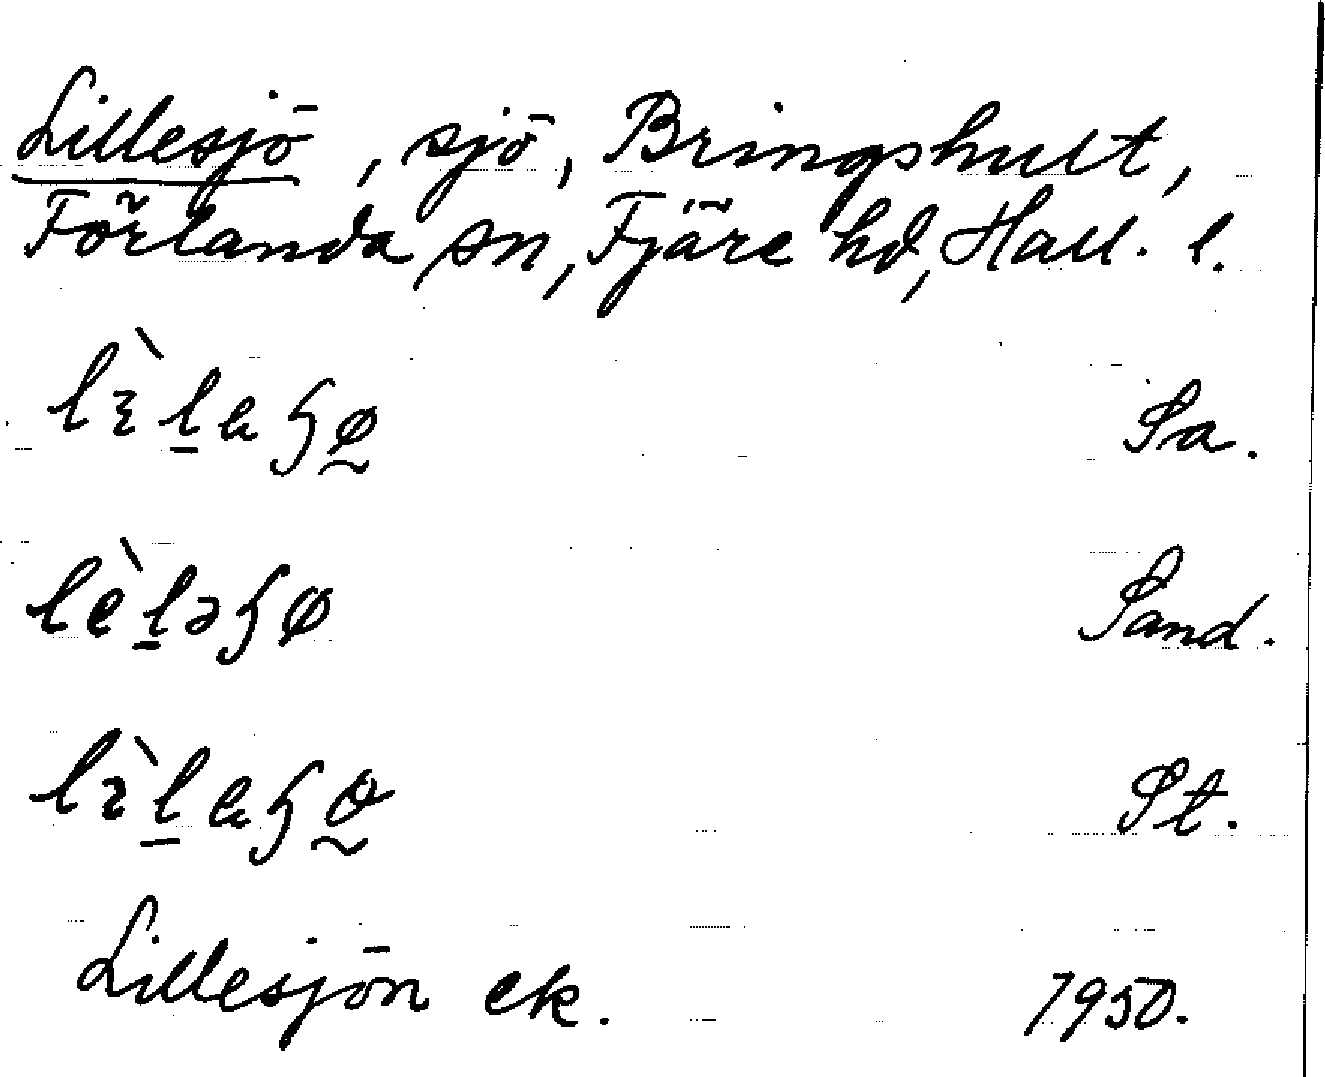 Lillesjö, sjö, Bringshult,
Förlanda sn, Fjäre hd, Hall. l.
Sa.
Sand.
St.
Lillesjön ek. 1950.